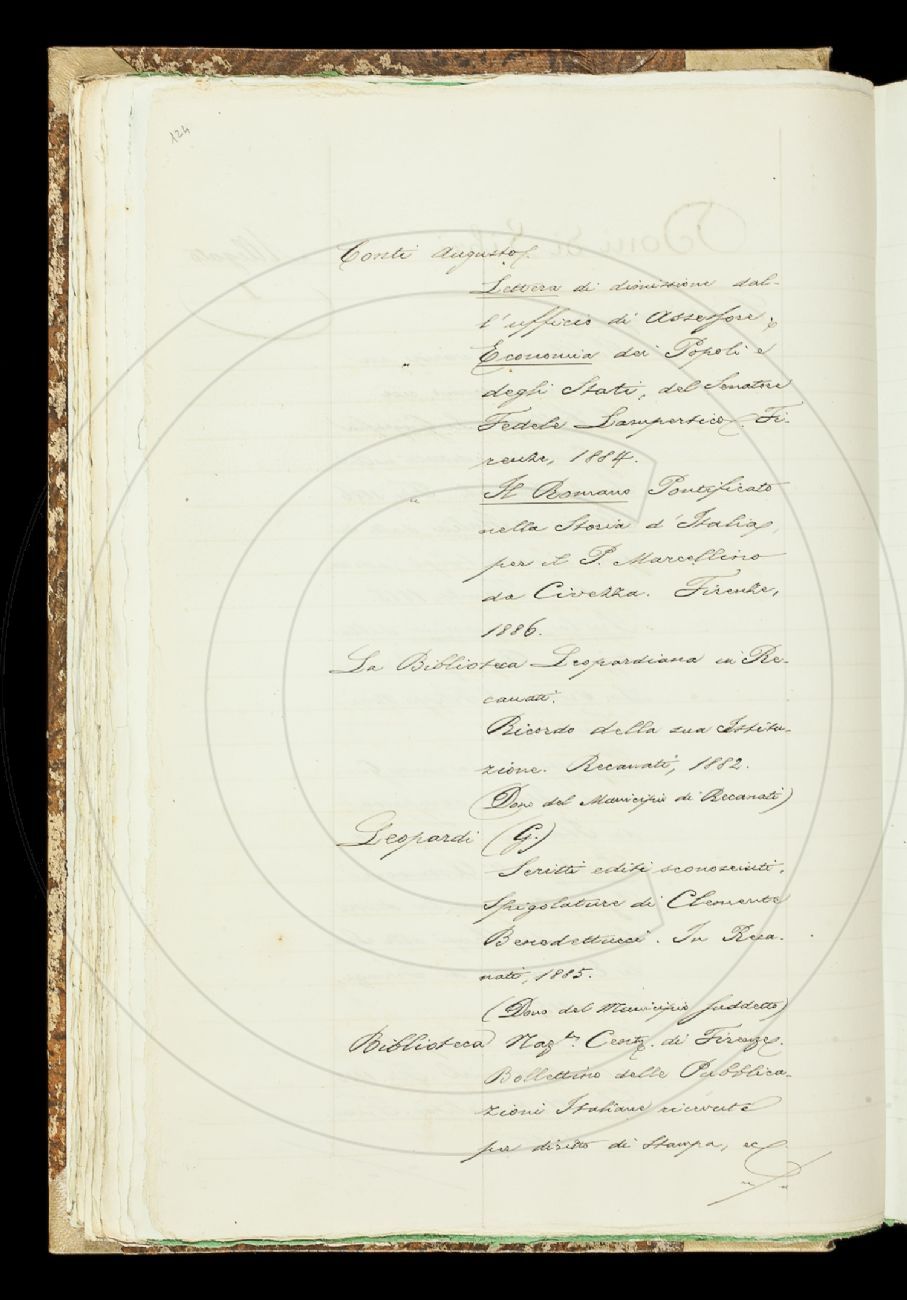 124
Conti Augusto.
Lettera di dimissione dal-
l'ufficio di Assessore;
" Economia dei Popoli e
degli Stati, del Senatore
Fedele Lampertico. Fi-
renze, 1884.
" Il Romano Pontificato
nella Storia d'Italia,
per il P. Marcellino
da Civezza. Firenze,
1886.
La Biblioteca Leopardiana in Re-
canati.
Ricordo della sua Istitu-
zione. Recanati, 1882.
(Dono del Municipio di Recanati)
Leopardi (G.)
Scritti editi sconosciuti,
Spigolature di Clemente
Benedettucci. In Reca-
nati, 1885.
(Dono del Municipio suddetto)
Biblioteca Naz.le Centr. di Firenze.
Bollettino delle Pubblica-
zioni Italiane ricevute
per diritto di Stampa, ec